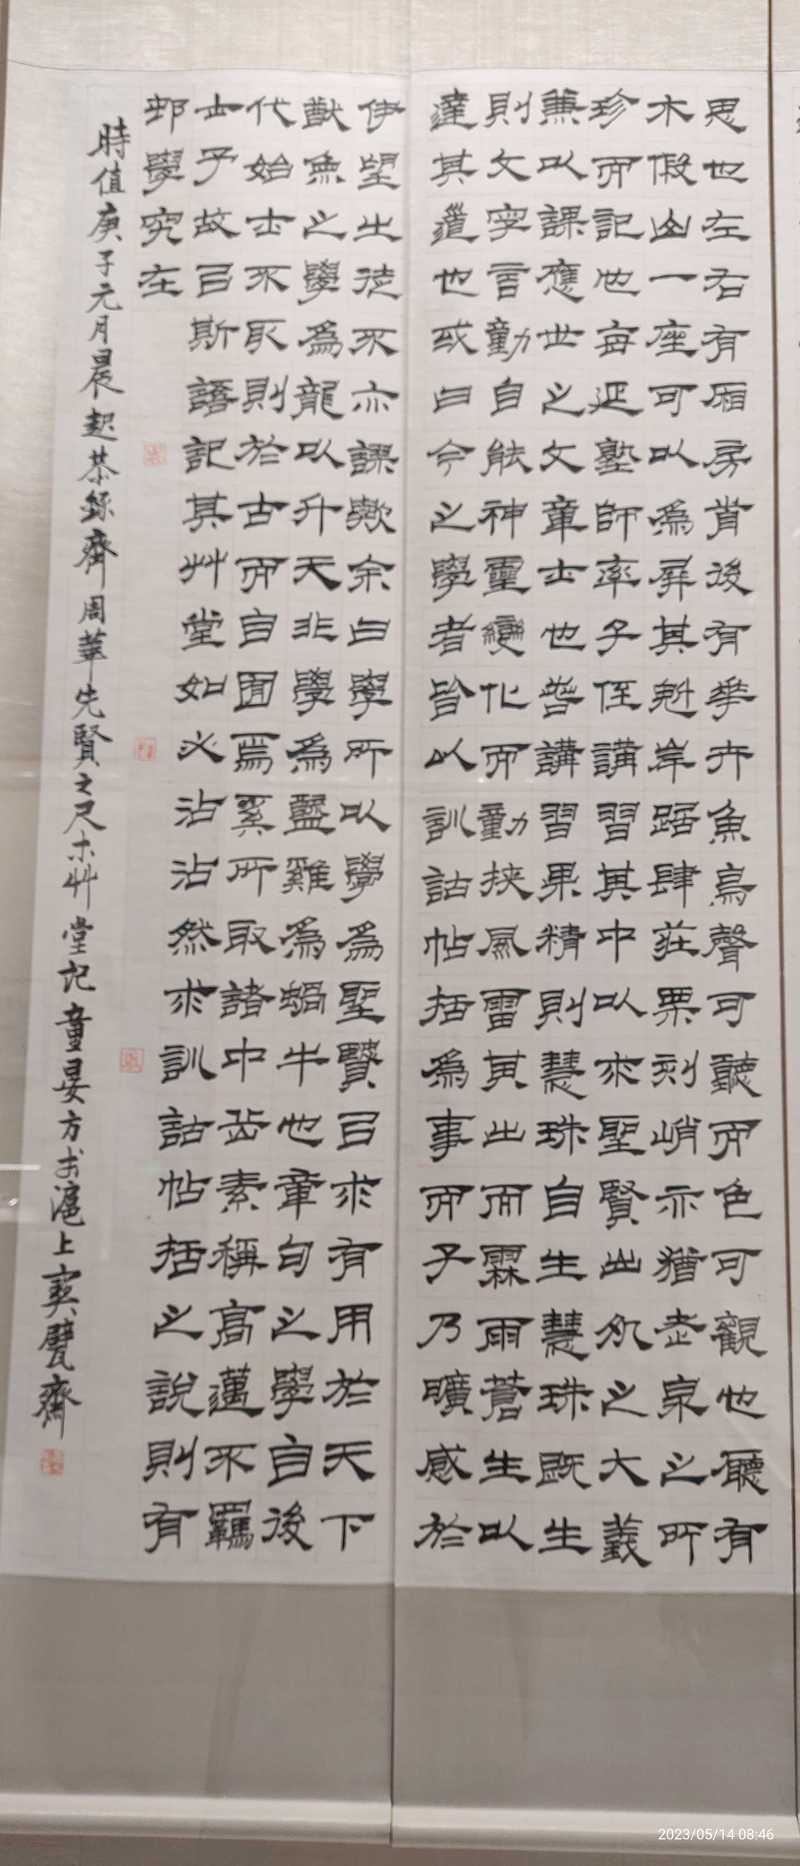 思也左右有廂房背後有華卉魚鳥聲可聽而色可觀也廳有
木假山一座可以為屏其魁岸踞肆莊栗刻峭亦猶老泉之所
珍而記也每延塾師率子侄講習其中以求聖賢出處之大義
兼以課應世之文章士也苟講習果精則慧珠自生慧珠既生
則文字言動自能神靈變化而動挾風雷其出而霖雨蒼生以
達其道也或曰今之學者皆以訓詁帖括為事而子乃曠感於
伊望出徒不亦謬歟余曰學所以學為聖賢曰求有用於天下
獸魚之學為龍以升天非學為醯雞為蝸牛也章句之學自後
代始士不取則於古而自囿焉奚所取諸中岳素稱高邁不羈
士予故曰斯語記其艸堂如必沾沾然求訓詁帖括之說則有
邨學究在
時值庚子元月晨起恭錄齊周華先賢之尺木艸堂記童晏方於滬上寶甓齋
2023/05/14 08:46